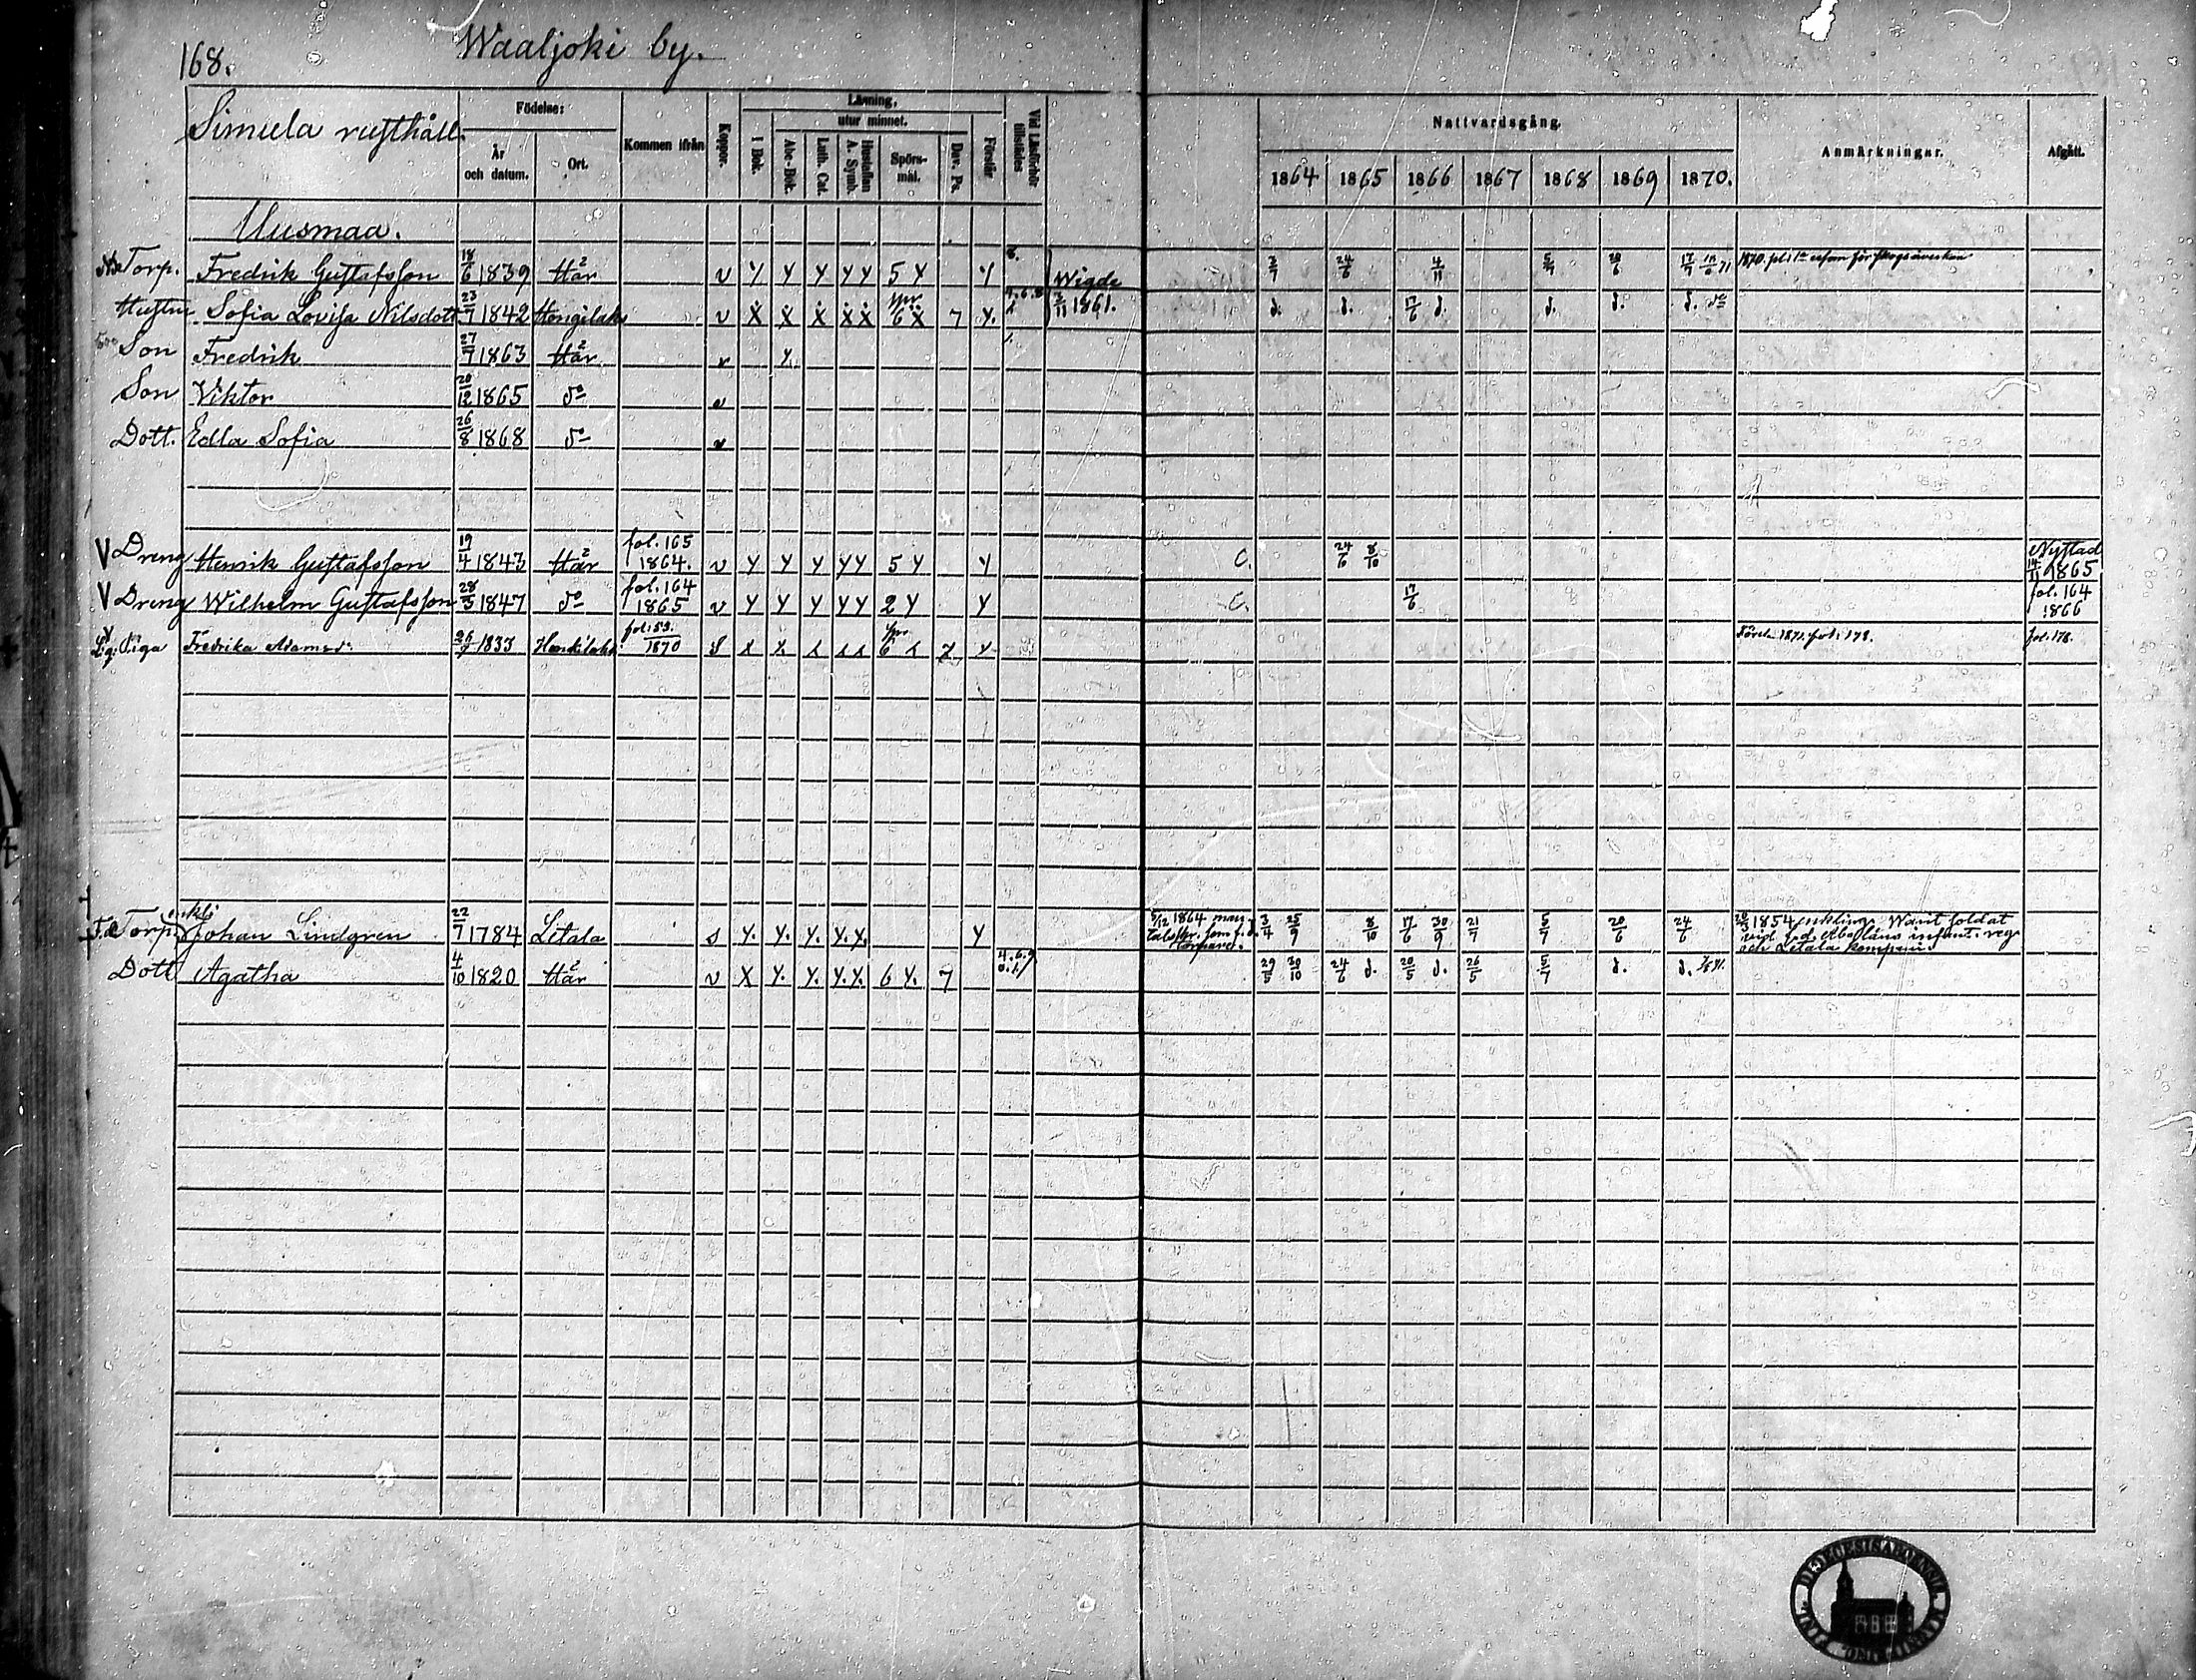 168.
Waaljoki by.
Simula rusthåll.
Födelse:
År och datum.
Ort.
Kommen ifrån
Koppor.
Läsning,
I Bok.
utur minnet.
Abc-Bok.
Luth. Cat.
Hustaflan A. Symb.
Spörsmål.
Dav. Ps.
Förstår
Vid Läsförhör tillstädes
Nattvardsgång.
1864 1865 1866 1867 1868 1869 1870.
Anmärkningar.
Afgått.
Uusmaa.
Torp. Fredrik Gustafsson 18/6 1839 Här v Y Y Y Y Y 5 Y Y Wigde 24/6 4/11 5/7 20/6
Hustru Sofia Lovisa Nilsdott 23/7 1842 v X X X X X 6 X 7 Y. 3/11 1861. d. d. 17/6 d. d. d. d.
Son Fredrik 27/7 1863 Här v Y.
Son Viktor 20/12 1865 do v
Dott. Edla Sofia 26/8 1868 do v
V Dreng Henrik Gustafsson 19/4 1843 Här fol. 165 1864. v Y Y Y Y Y 5 Y Y C. 24/6 8/10 Nystad 1865
V Dreng Wilhelm Gustafsson 28/5 1847 do fol. 164 1865 v Y Y Y Y Y 2 Y Y C. 17/6 fol. 164 1866
Piga Fredrika Adamsd. 1833 1870 fol. 178. fol. 178.
F.d. Torp. enkl. Johan Lindgren 22/7 1784 Letala s Y. Y. Y. Y. Y. Y 1864 som f.d. torpare. 3/4 25/9 8/10 17/6 30/9 21/7 5/7 20/6 24/6 1854 enkling. Warit soldat vid f.d. Åbo läns infant. reg. och Letala kompani.
Dott Agatha 4/10 1820 Här v X Y. Y. Y. Y. 6 Y. 7 29/5 30/10 24/6 d. 20/5 d. 26/5 5/7 d. d.